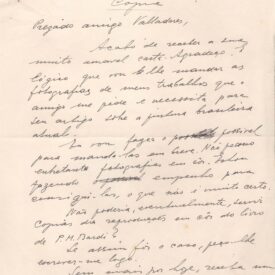 Copia
Prezado amigo Valladares,
Acabo de receber a sua
muito amavel carta. Agradeço.
Lógico que vou lhe mandar as
fotografias de meus trabalhos que o
amigo me pede e necessita para
seu artigo sobre a pintura brasileira
atual.
Eu vou fazer o possível
para mandá-las em breve. Não possuo
entretanto fotografias em côr. Estou
fazendo empenho para
consegui-las, o que não é muito certo.
Não poderia, eventualmente, servir
cópias das reproduções em côr do livro
de P. M. Bardi?
Se assim fôr o caso, peço-lhe
escrever-me logo.
Sem mais por hoje, receba um